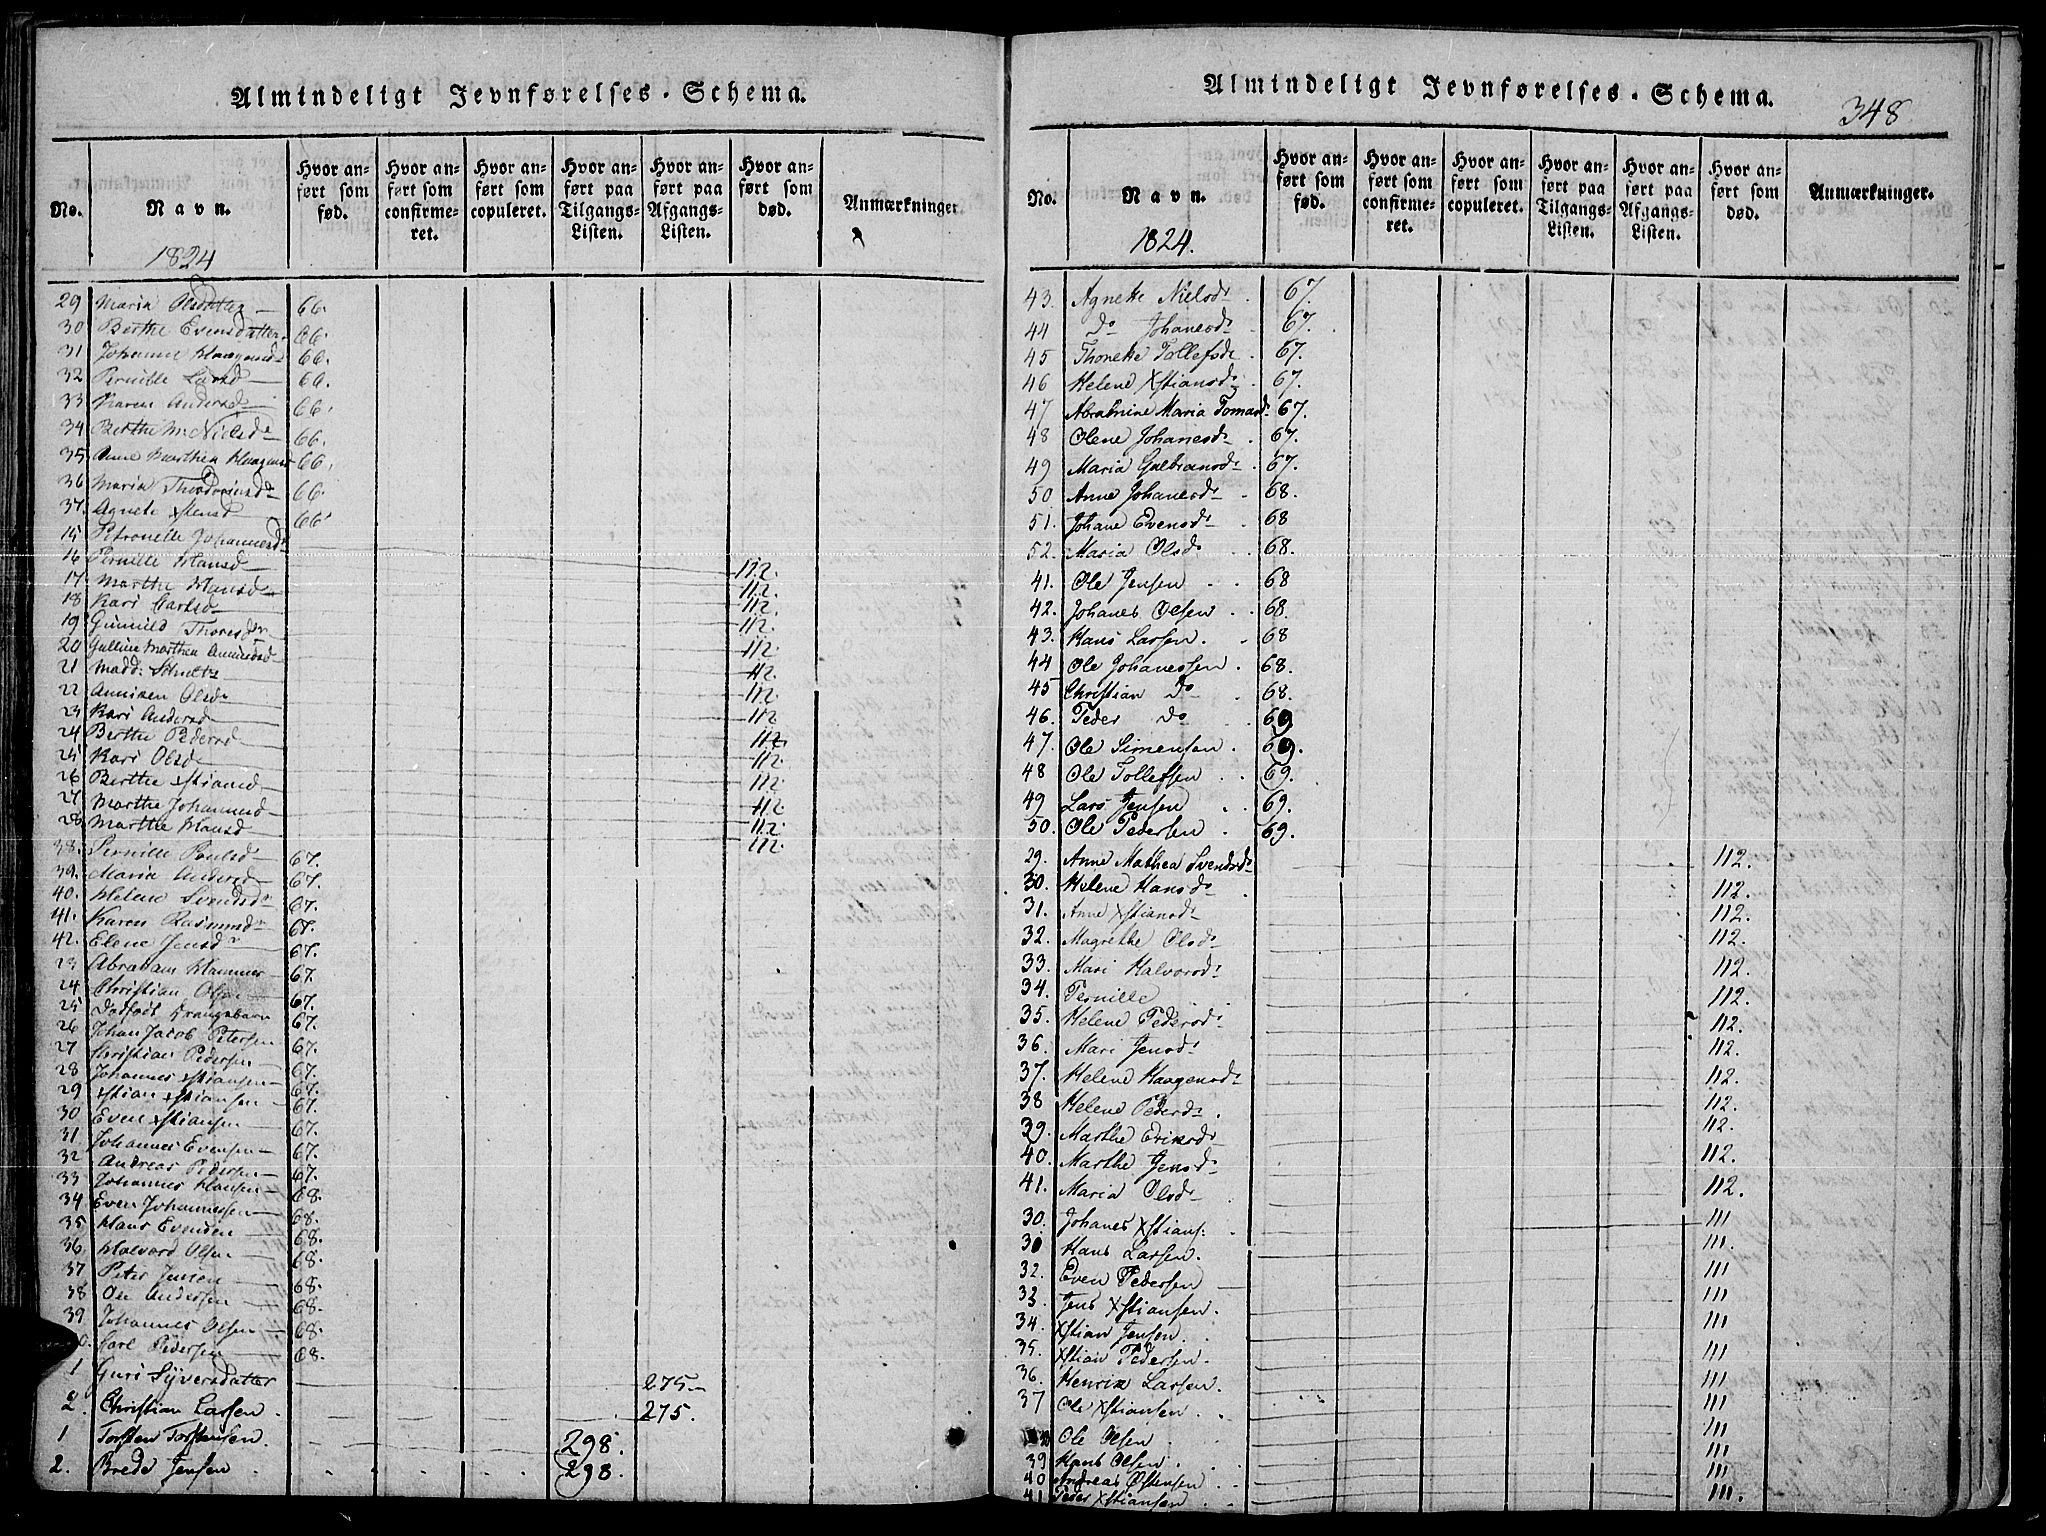 Almindeligt Jevnførelses-Schema.
No.
Navn.
Hvor anført som fød.
Hvor anført som confirmeret.
Hvor anført som copuleret.
Hvor anført paa Tilgangs-Listen.
Hvor anført paa Afgangs-Listen.
Hvor anført som død.
Anmærkninger
1824
29 Maria Olsdatter 66.
30 Berthe Evensdatter 66.
31 Johanne Haagensd 66.
32 Pernille Larsd 66.
33 Karen Andersd 66.
34 Berthe M. Nielsd 66.
35 Anne Marthea Haagensd 66.
36 Maria 66.
37. Agnete Xstensd 66.
15 Petronelle Johannesd
16 Pernille Hansd 112.
17. Marthe Hansd 112.
18 Kari Carlsd 112.
19 Gunnild 112.
20 Gulline Marthea 112.
21 Madd: 112.
22 Anniken Olsd 112.
23 Kari Andersd 112.
24 Berthe Pedersd 112.
25 Kari Olsd 112.
26 Berthe Xstiansd 112.
27 Marthe Johannesd 112.
28 Marthe Hansd 112.
38. Pernille Poulsd 67.
39. Maria Andersd 67.
40. Helene Svendsd 67.
41. Karen Rasmusd 67.
42. Elene Jensd 67.
23 Abraham Hammer 67.
24 Christian Olsen 67.
25 Dødfødt Drængebarn 67.
26 Johan Jacob Petersen 67.
27 Christian Pedersen 67.
28 Johannes Xstiansen 67.
29 Xstian Xstiansen 67.
30 Even Xstiansen 67.
31 Johannes Evensen 67.
32 Andreas Pedersen 67.
33 Johannes Hansen 68.
34 Even Johannessen 68.
35 Hans Evensen 68.
36 Halvord Olsen 68.
37 Peter Jensen 68.
38 Ole Andersen 68.
39 Johannes Olsen 68.
Carl Pedersen 68.
1 Guri Syversdatter 275.
2. Christian Larsen. 275.
1 Torsten Torstensen. 298.
2. Brede Jensen. 298.
Almindeligt Jevnførelses-Schema.
348
No.
Navn.
Hvor anført som fød.
Hvor anført som confirmeret.
Hvor anført som copuleret.
Hvor anført paa Tilgangs-Listen.
Hvor anført paa Afgangs-Listen.
Hvor anført som død.
Anmærkninger.
1824.
43. Agnethe Nielsd. 67.
44 Do Johanesd. 67.
45 Thonette Tollefsd. 67.
46 Helene Xstiansd. 67.
47 Maria Tomasd. 67.
48 Olene Johanesd. 67.
49 Maria Gulbransd. 67.
50 Anne Johanesd. 68.
51. Johane Evensd. 68
52. Maria Olsd. 68.
41. Ole Jensen 68
42. Johanes Olsen 68.
43. Hans Larsen. 68
44 Ole Johanessen. 68.
45 Christian Do 68.
46. Peder Do 69
47. Ole Simensen. 69.
48 Ole Tollefsen 69.
49 Lars Jensen 69.
50. Ole Pedersen 69.
29. Anne Mathea Svendsd. 112.
30. Helene Hansd. 112.
31. Anne Xstiansd. 112.
32. Magrethe Olsd. 112.
33. Mari Halvorsd. 112.
34. Pernille 112.
35. Helene Pedersd. 112.
36. Mari Jensd. 112.
37. Helene Haagensd. 112.
38 Helene Pedersd. 112.
39. Marthe Eriksd. 112.
40. Marthe Jensd. 112.
41. Maria Olsd. 112.
30. Johanes Xstians: 111
31 Hans Larsen. 111.
32. Even Pedersen 111
33. Jens Xstiansen. 111
34. Xstian Jensen. 111
35. Xstian Pedersen. 111
36. Henrik Larsen. 111
37 Ole Xstiansen. 111
Ole Olsen 111
39 Hans Olsen. 111
40 Andreas Østensen 111
41 Peder Xstiansen 111.